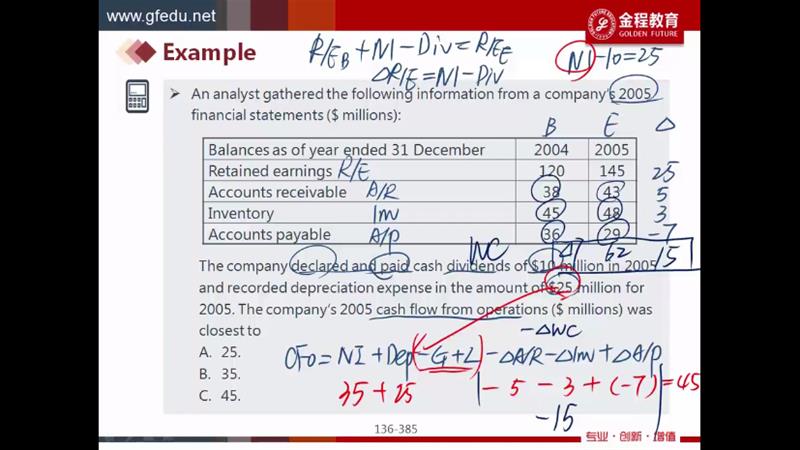 www.gfedu.net
金程教育
GOLDEN FUTURE
Example
R/E_B + NI - Div = R/E_E
ΔR/E = NI - Div
NI - 10 = 25
An analyst gathered the following information from a company's 2005
financial statements ($ millions):
B E Δ
Balances as of year ended 31 December 2004 2005
Retained earnings R/E 120 145 25
Accounts receivable A/R 38 43 5
Inventory Inv 45 48 3
Accounts payable A/P 36 29 -7
WC 47 62 15
The company declared and paid cash dividends of $10 million in 2005
and recorded depreciation expense in the amount of $25 million for
2005. The company's 2005 cash flow from operations ($ millions) was
closest to
-ΔWC
A. 25.
CFO = NI + Dep (-G+L) -ΔA/R -ΔInv + ΔA/P
B. 35.
35 + 25 - 5 - 3 + (-7) = 45
C. 45.
-15
136-385
专业·创新·增值